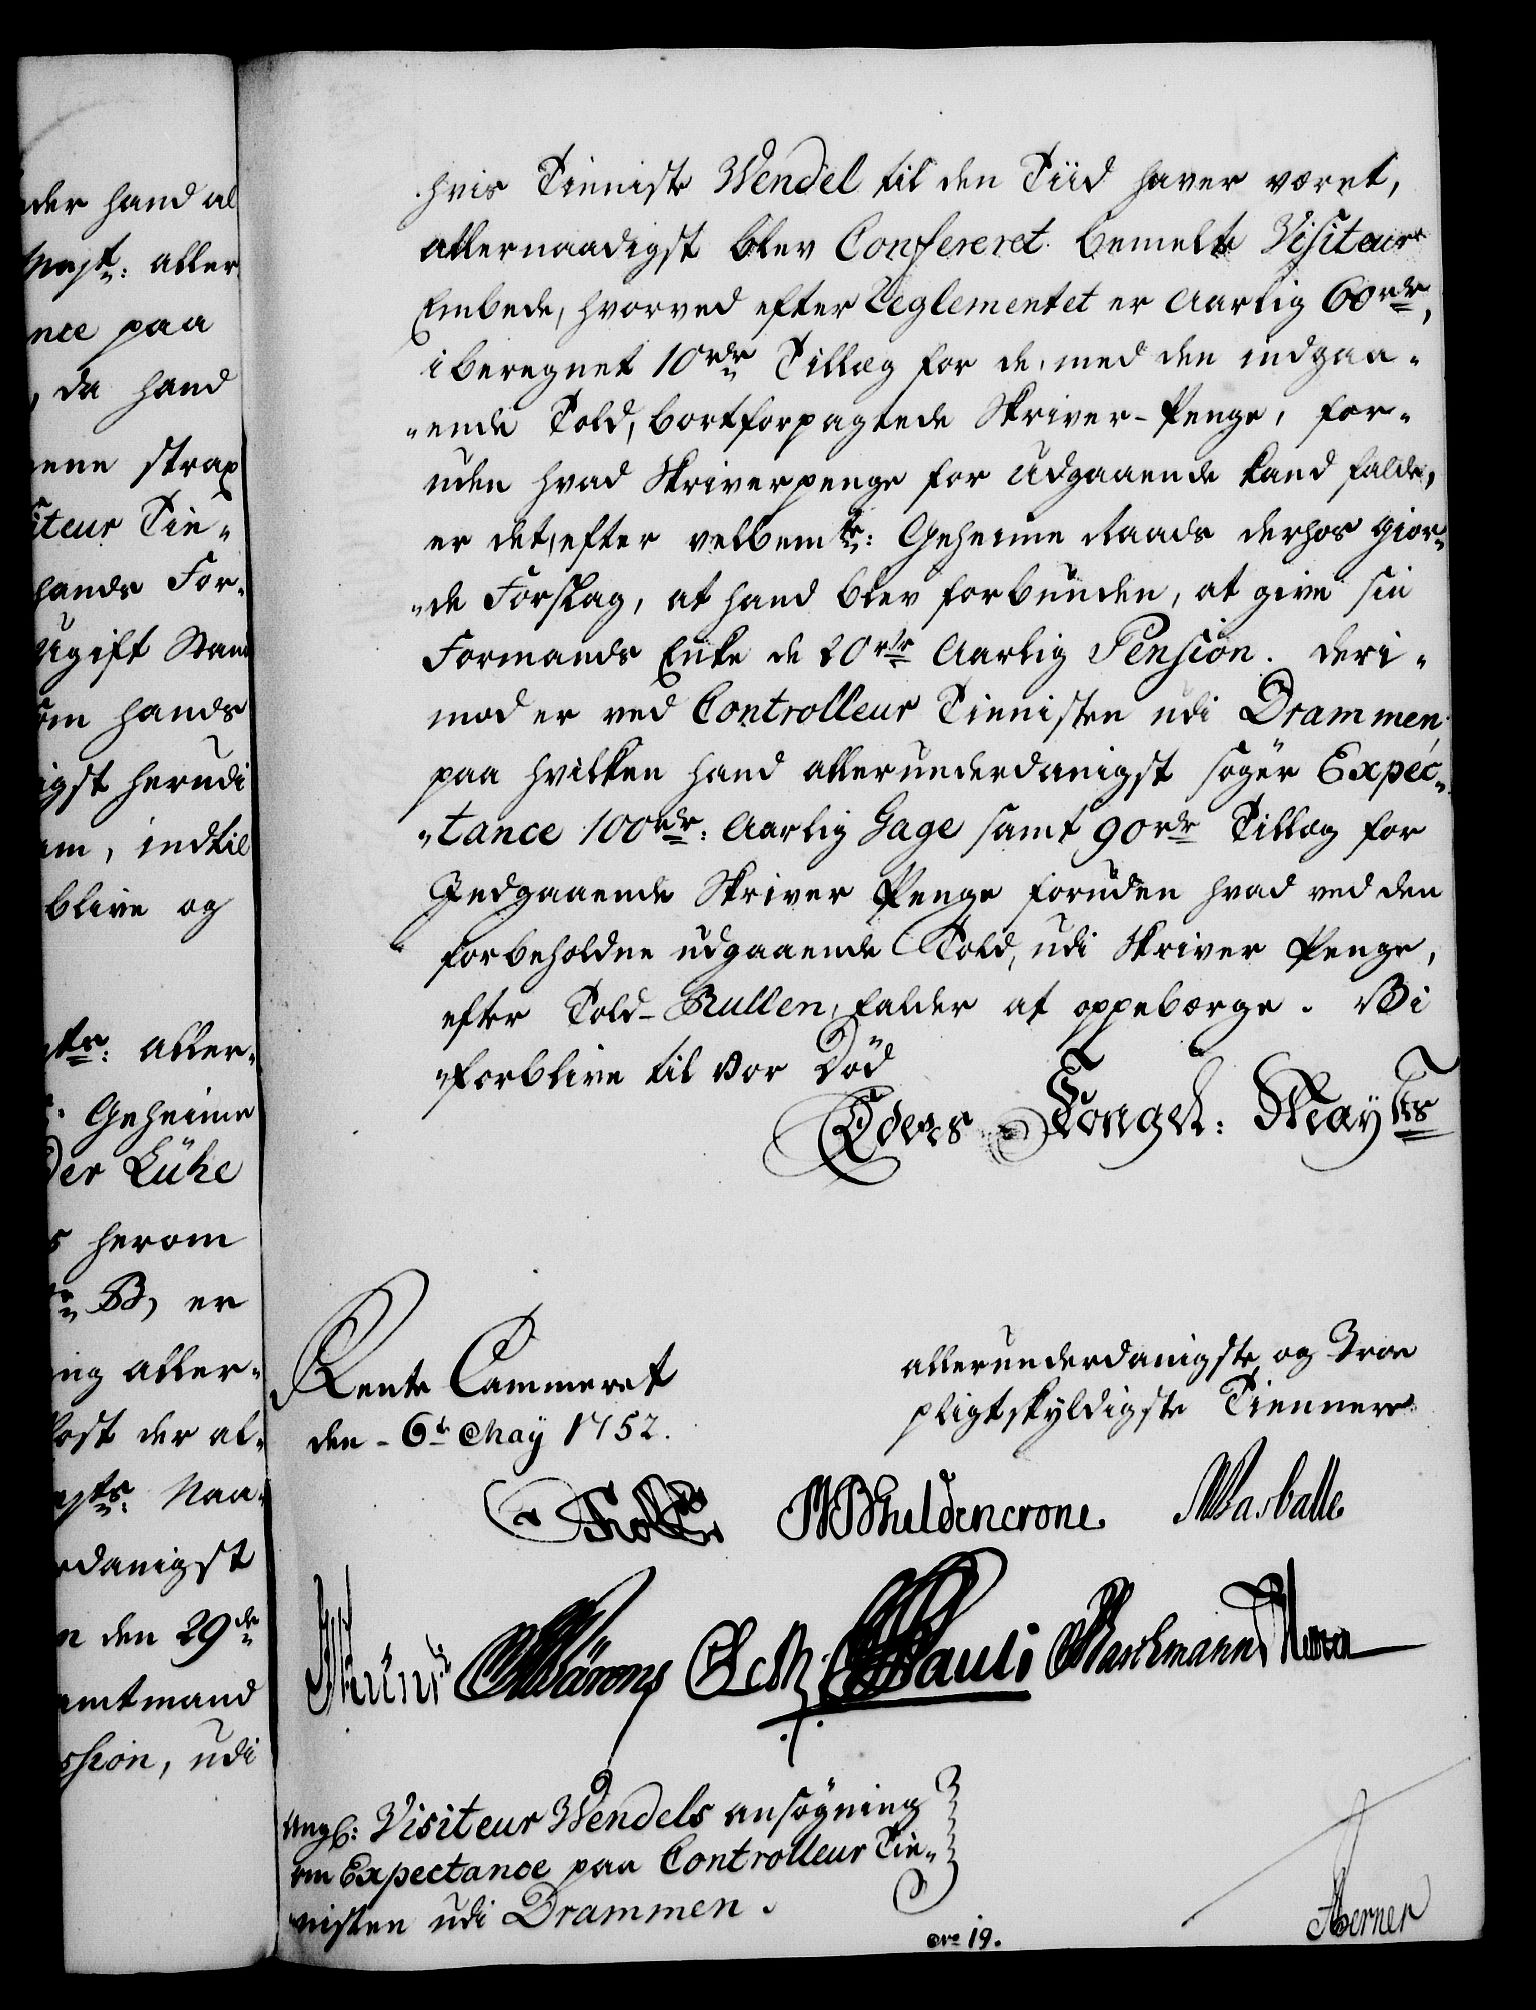 der hand al
Mayt: aller
nce paa
, da hand
ene strax
iteur Tie-
hands For-
ugift Stand
om hands
igst herudi
am, indtil
blive og
ts: aller-
: Geheime
der Lühe
s herom
B, er
ng aller-
Post der al-
ayts: Naa-
rdanigst
n den 29de
amtmand
ssion, udi
hvis Tieniste Wendel til den Tiid haver været,
allernaadigst blev Confereret bemelte Visiteur
Embede, hvorved efter Reglementet er Aarlig 60rdr,
iberegnet 10rdr Tillæg for de, med den indgaa-
-ende Told, bortforpagtede Skriver-Penge, for-
uden hvad Skriverpenge for Udgaaende kand falde,
er det, efter velbemte: Geheime Raads derhos gior-
-de Forslag, at hand blev forbunden, at give sin
Formands Enke de 20rdr Aarlig Pension. deri-
mod er ved Controlleur Tienisten udi Drammen,
paa hvilken hand allerunderdanigst søger Expec-
-tance 100rdr: Aarlig Gage samt 90rdr Tillæg for
Indgaaende Skriver Penge foruden hvad ved den
forbeholdne udgaaende Told, udi Skriver Penge,
efter Told-Rullen, falder at oppebærge. Vi
forblive til vor Død
Eders Kongel: Mayts
Rente Cammeret
den 6te May 1752.
allerunderdanigste og Troe
pligtskyldigste Tiennere
Holst MBGuldencrone Wasballe
Pauli Waschmann
Ang: Visiteur Wendels ansøgning
om Expectance paa Controlleur Tie-
nisten udi Drammen.
No 19.
Aberner